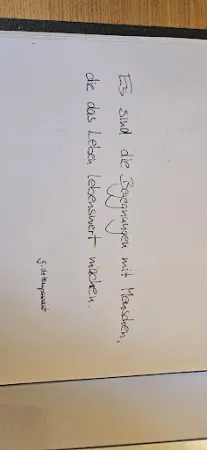 Es sind die Begegnungen mit Menschen,
die das Leben lebenswert machen.
G. de Maupassant